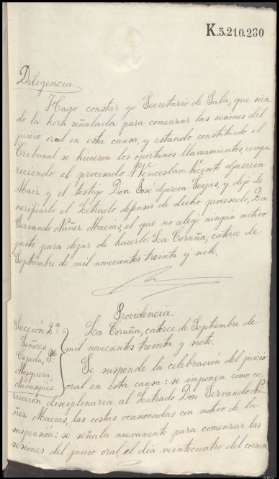 K.5.210.230
Diligencia
Hago constar yo Secretario de Sala, que siendo
de la hora señalada para comenzar las sesiones del
juicio oral en esta causa, y estando constituido el
Tribunal se hicieron los oportunos llamamientos compa
reciendo el procesado Wenceslao
y el testigo Don José García y dejó de
verificarlo el Letrado defensor de dicho procesado, Don
Fernando Núñez Macías, el que no alegó ningún motivo
justo para dejar de hacerlo. La Coruña, catorce de
Septiembre de mil novecientos treinta y siete.
Providencia
Sección 2ª
La Coruña, catorce de Septiembre de
Señores
mil novecientos treinta y siete.
Se suspende la celebración del juicio
oral en esta causa: se impone como co
rrección disciplinaria al Letrado Don Fernando Nú
ñez Macías, las costas ocasionadas con motivo de la
suspensión: se señala nuevamente para comenzar las
sesiones del juicio oral el día veinticuatro del corrien